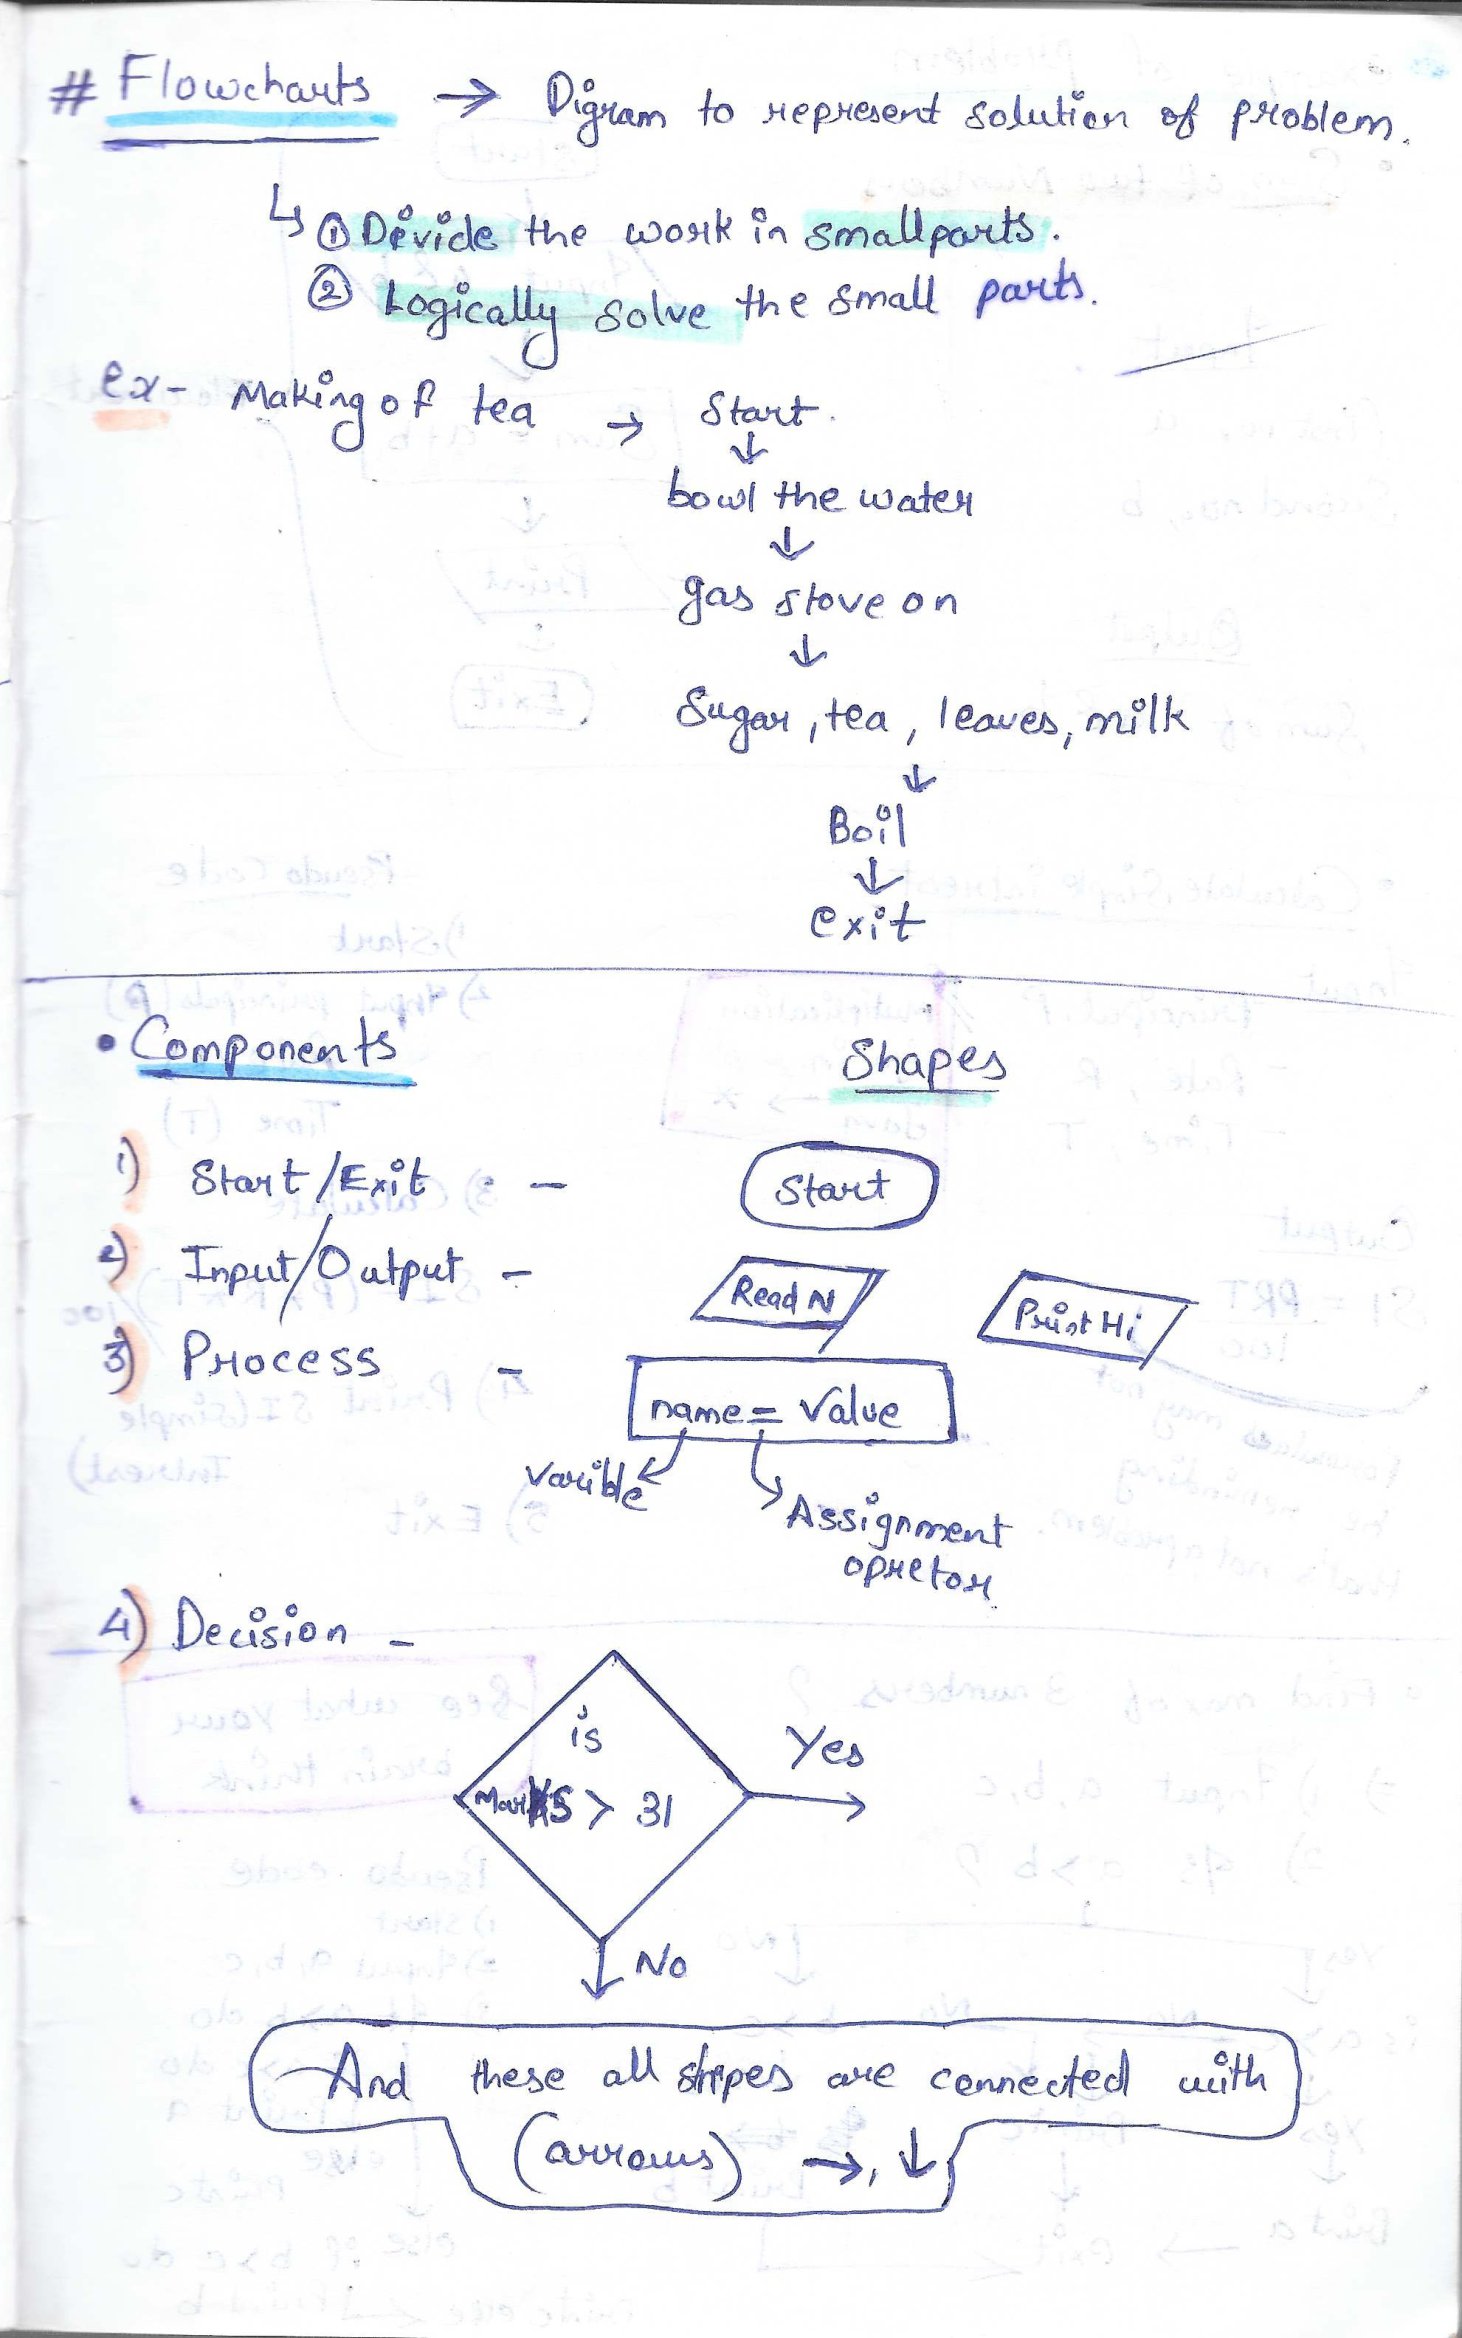 # Flowcharts → Digram to represent solution of problem.
↳ ① Devide the work in small parts.
② Logically solve the small parts.
ex- Making of tea → Start.
↓
bowl the water
↓
gas stove on
↓
Sugar, tea, leaves, milk
↓
Boil
↓
exit
• Components Shapes
1) Start/Exit - Start
2) Input/Output - Read N Print Hi
3) Process - name = Value
Varible Assignment
opretor
4) Decision -
is
Marks > 31
Yes
No
And these all shpes are connected with
(arrows) →, ↓